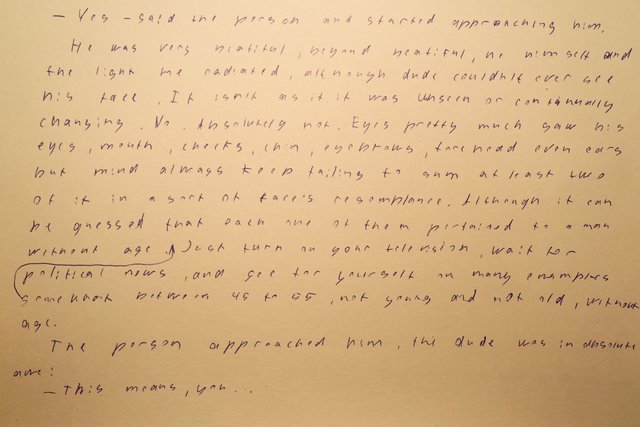 — Yes — said the person and started approaching him.
He was very beatiful, beyond beatiful, he himself and
the light he radiated, although dude couldn't ever see
his face. It isn't as if it was unseen or continually
changing. No. Absolutely not. Eyes pretty much saw his
eyes, mouth, cheeks, chin, eyebrows, forehead even ears
but mind always keep failing to sum at least two
of it in a sort of face's resemplance. Although it can
be guessed that each one of them pertained to a man
without age. Just turn on your television, wait for
political news, and see for yourself on many examples
somewhat between 45 to 55, not young and not old, without
age.
The person approached him, the dude was in absolute
awe:
— This means, you...